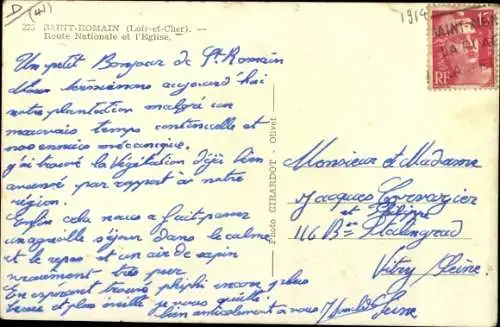 D (41)
225 SAINT-ROMAIN (Loir-et-Cher). —
Route Nationale et l'Eglise.
1914
15
RF
Un petit Bonjour de St Romain
Nous terminons aujourd'hui
notre plantation malgré un
mauvais temps continuelle et
nos ennuis mécanique.
j'ai trouvé la Végétation déjà bien
avancé par rapport à notre
région.
Enfin cela nous a fait passer
un agréable séjour dans le calme
et le repos et un air de sapin
vraiment très pur.
En espérant trouvé phiphi encore plus
et plus je vous quitte.
bien amicalement à vous
Photo GIRARDOT - Olivet
Monsieur et Madame
Jacques
et Philippe
116 Bis Stalingrad
Vitry s/Seine
Seine